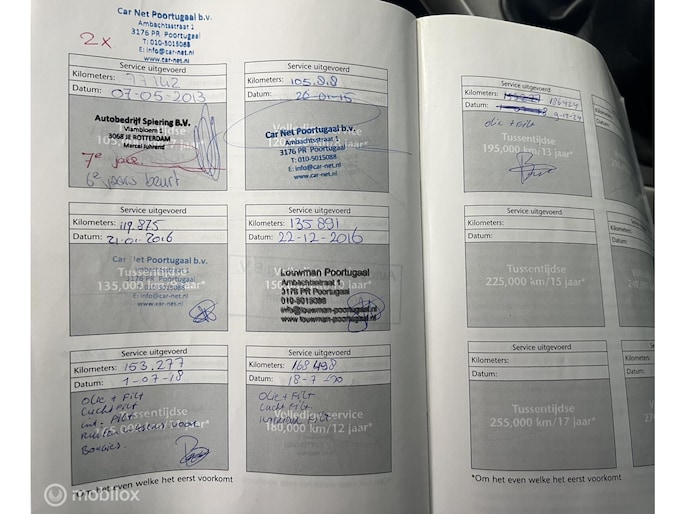 Car Net Poortugaal b.v.
Ambachtsstraat 1
3176 PR Poortugaal
T: 010-5015088
E: info@car-net.nl
www.car-net.nl
2x
Service uitgevoerd
Kilometers: 77142
Datum: 07-05-2013
Autobedrijf Spiering B.V.
Vlambloem 1
3068 JE ROTTERDAM
Marcel Juhrend
7e
6e jaars beurt
Service uitgevoerd
Kilometers: 105.
Datum: 26-01-15
Car Net Poortugaal b.v.
Ambachtsstraat 1
3176 PR Poortugaal
T: 010-5015088
E: info@car-net.nl
www.car-net.nl
Service uitgevoerd
Kilometers: 119.875
Datum: 21-01-2016
Car Net Poortugaal b.v.
Ambachtsstraat 1
Tussentijdse
3176 PR Poortugaal
135,000 km/
T: 010-5015088
E: info@car-net.nl
www.car-net.nl
Service uitgevoerd
Kilometers: 135 891
Datum: 22-12-2016
Louwman Poortugaal
Ambachtsstraat 1
3176 PR Poortugaal
010-5015088
info@louwman-poortugaal.nl
www.louwman-poortugaal.nl
Service uitgevoerd
Kilometers: 153.277
Datum: 1-07-18
Olie + Filt
Lucht Filt
int. Filt
Tussentijdse
Bougies
Service uitgevoerd
Kilometers: 168498
Datum: 18-7-
Olie + Filt
Lucht Filt
Volledige service
180,000 km/12 jaar*
*Om het even welke het eerst voorkomt
Service uitgevoerd
Kilometers: 186424
Datum: 9-12-24
olie + Filt
Tussentijdse
195,000 km/13 jaar*
Service uitgevoerd
Kilometers:
Datum:
Tussentijdse
225,000 km/15 jaar*
Service uitgevoerd
Kilometers:
Datum:
Tussentijdse
255,000 km/17 jaar*
*Om het even welke het eerst voorkomt
mobilox